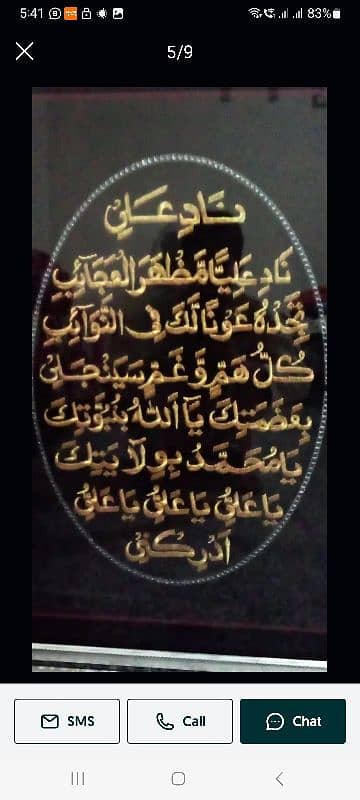 5:41
83%
5/9
ناد علی
نَادِ عَلِيًّا مَّظْهَرَ الْعَجَآئِبِ
تَجِدْهُ عَوْنًا لَّكَ فِی النَّوَآئِبِ
كُلُّ هَمٍّ وَّ غَمٍّ سَيَنْجَلِیْ
بِعَضَمَتِكَ يَآ اَللّٰهُ بِنُبُوَّتِكَ
يَا مُحَمَّدُ بِوِلَايَتِكَ
يَا عَلِیُّ يَا عَلِیُّ يَا عَلِیُّ
اَدْرِكْنِیْ
SMS Call Chat